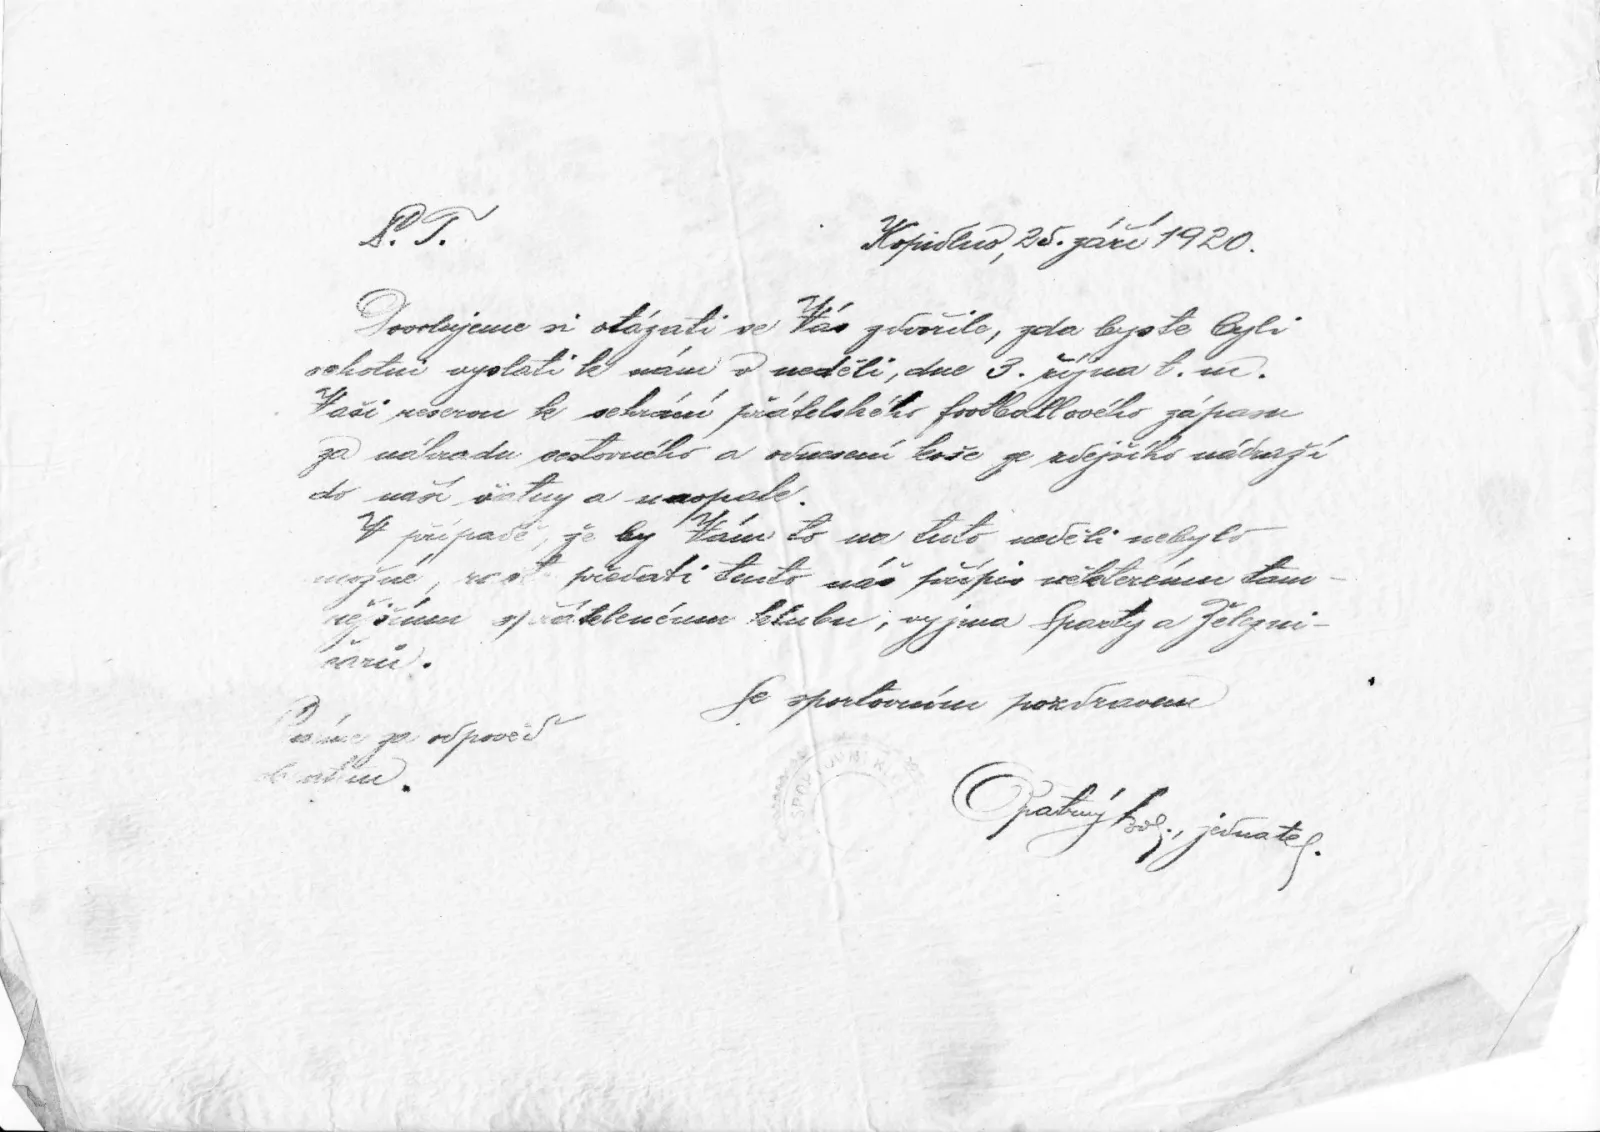 P. T.
Kopidlno, 25. září 1920.
Dovolujeme si otázati se Vás zdvořile, zda byste byli
ochotni vyslati k nám v neděli, dne 3. října t. m.
Vaši reservu k sehrání přátelského footballového zápasu
za náhradu cestovného a odnesení koše ze zdejšího nádraží
do naší šatny a naopak.
V případě, že by Vám to na tuto neděli nebylo
možné, račte předati tento náš přípis některému tam-
nějšímu spřátelenému klubu, vyjma Sparty a Železni-
čářů.
Se sportovním pozdravem
Prosíme za odpověď
obratem.
SPORTOVNÍ KLUB
Opatrný, jednatel.